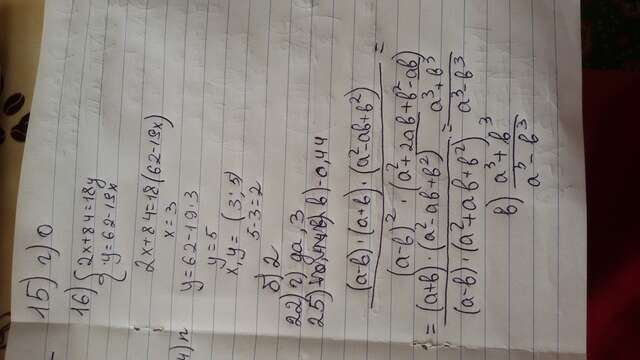 15) г) 0
16) { 2x+84=18y
y=62-19x
2x+84=18(62-19x)
x=3
y=62-19·3
y=5
x,y= (3; 5)
5-3=2
б) 2
22) г) да, 3
25) в) -0,44
(a-b)·(a+b)·(a²-ab+b²)
=
(a-b)²·(a²+2ab+b²-ab)
= (a+b)·(a²-ab+b²) = a³+b³
(a-b)·(a²+ab+b²) a³-b³
в) a³+b³
a³-b³